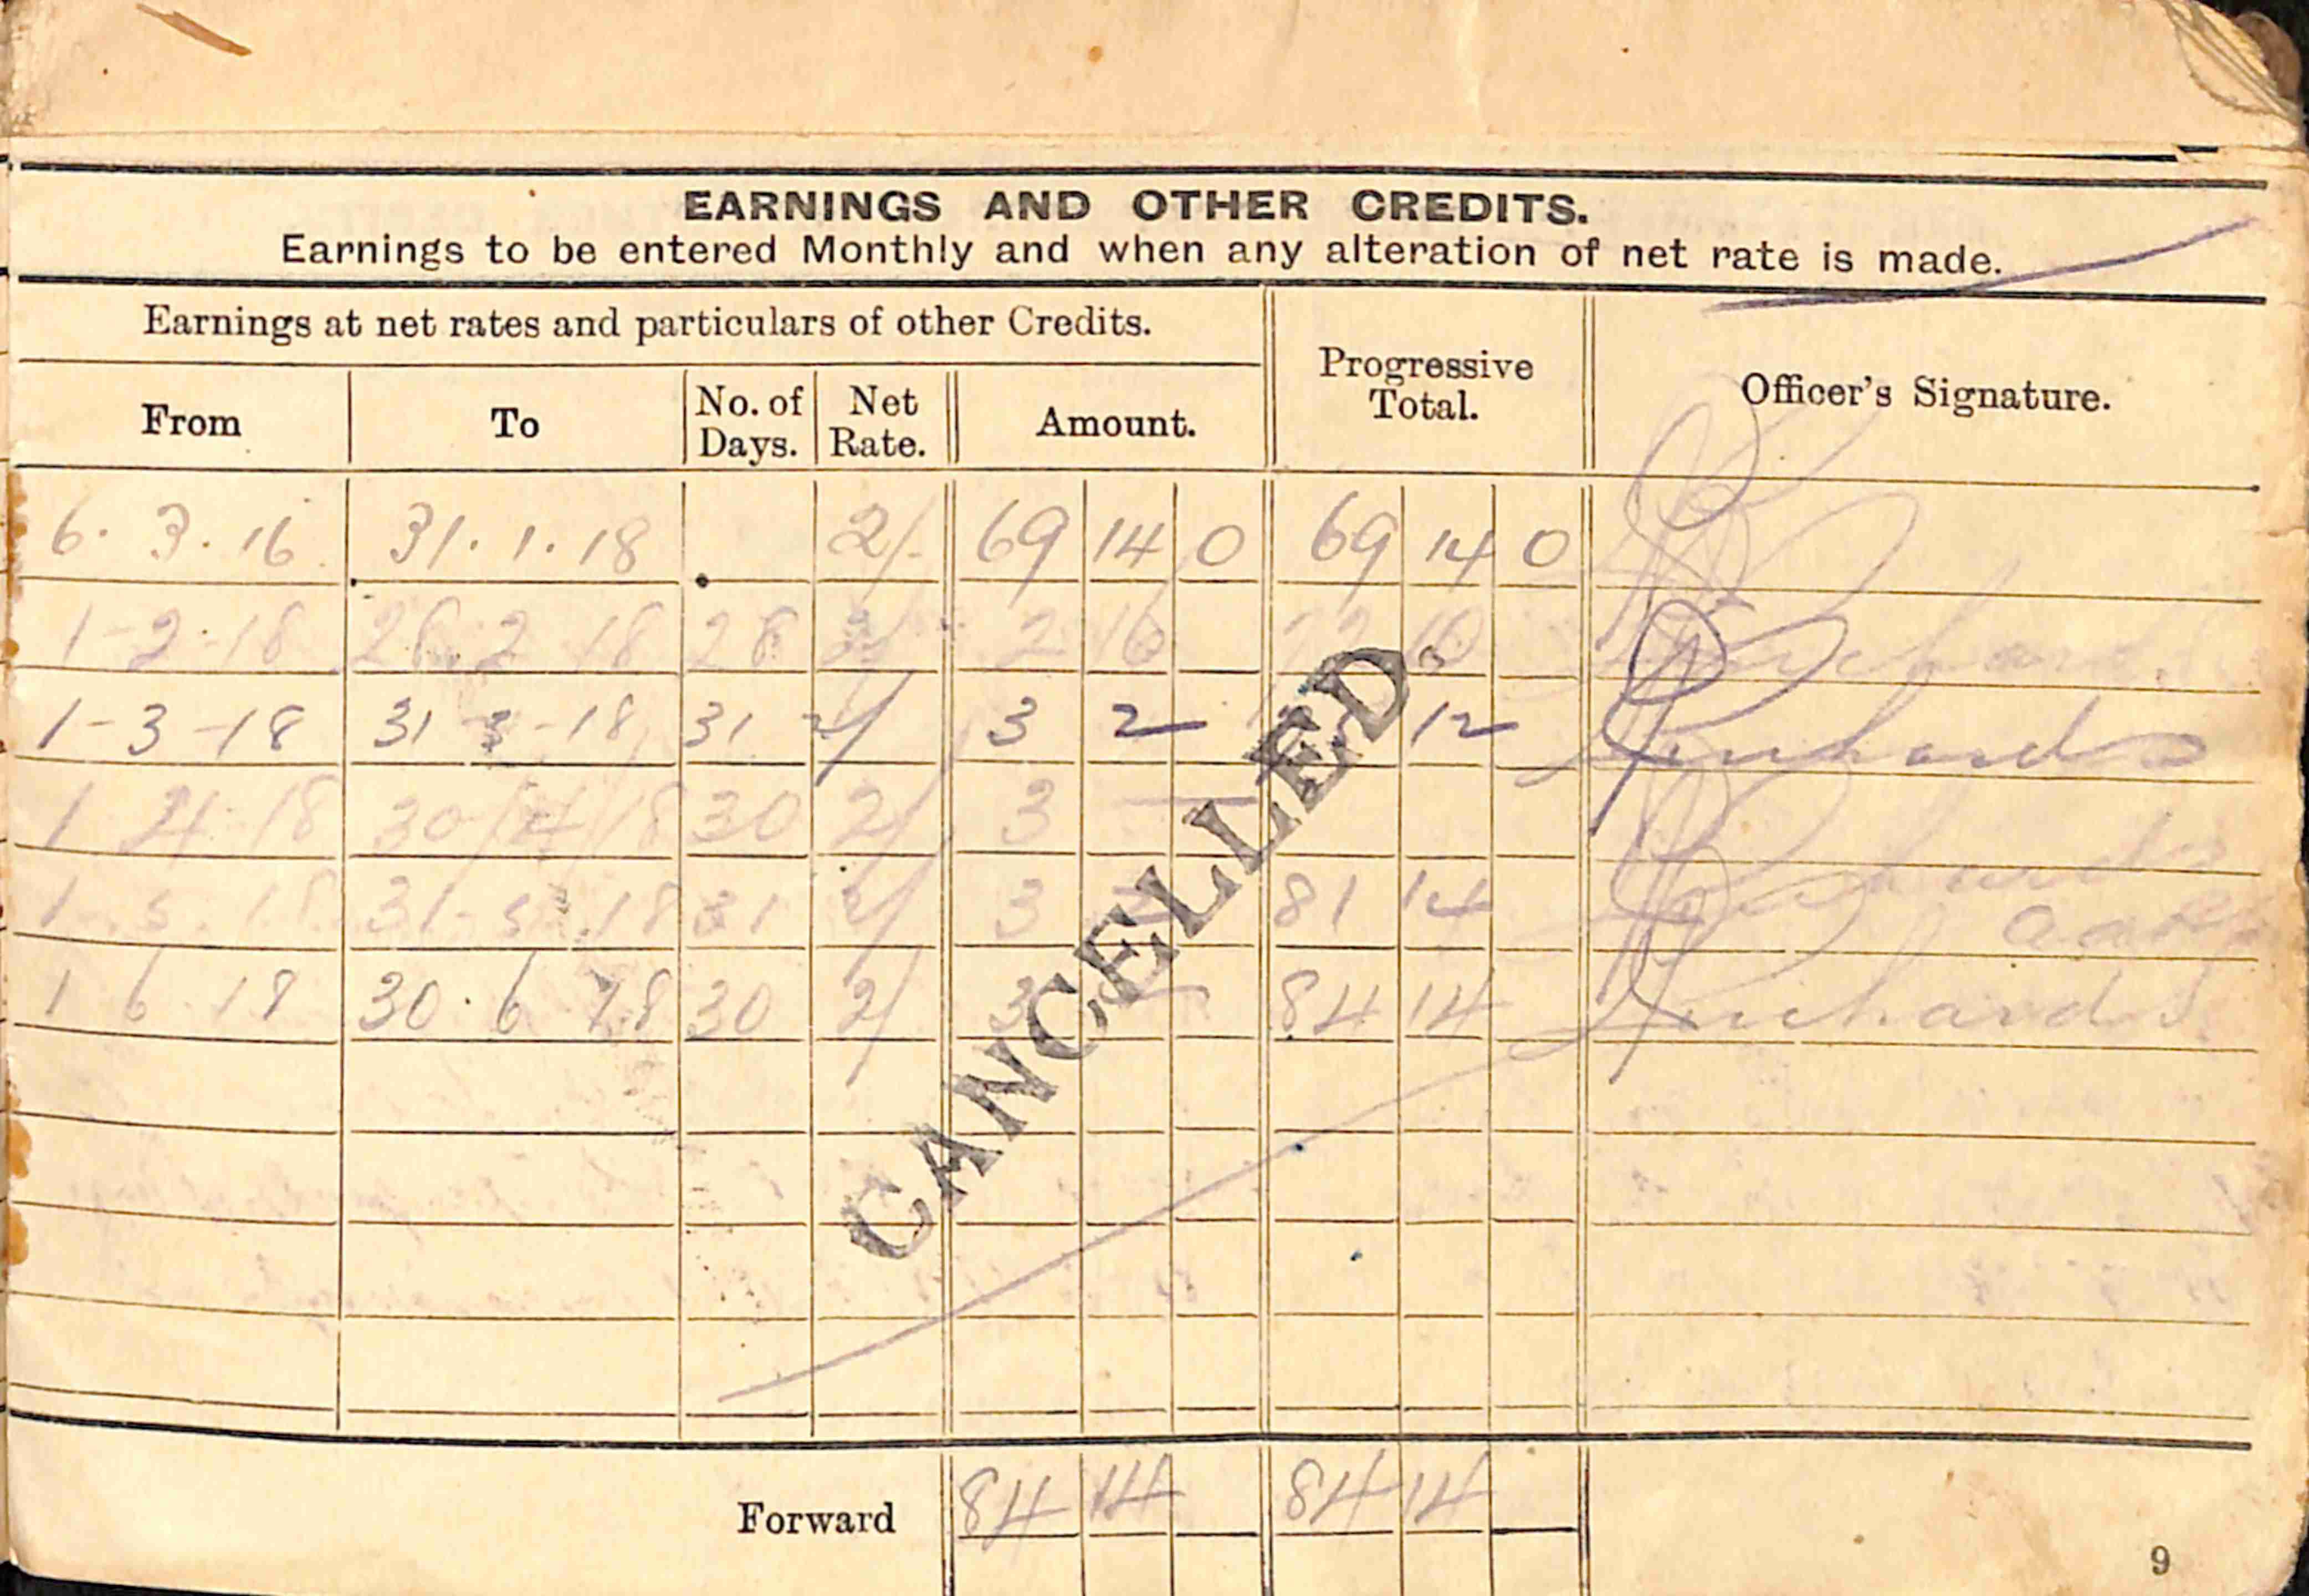 EARNINGS AND OTHER CREDITS.
Earnings to be entered Monthly and when any alteration of net rate is made.
Earnings at net rates and particulars of other Credits.
Progressive Total.
Officer's Signature.
From To No. of Days. Net Rate. Amount.
6. 3. 16 31. 1. 18 2/- 69 14 0 69 14 0
1-2-18 28. 2 18 28 2/ 2 16 72 10 Richards
1-3-18 31 3-18 31 2/ 3 2 12 Richards
1 4 18 30/4/18 30 2/ 3 — Richards
1. 5. 18 31-5-18 31 2/ 3 2 81 14
1 6 18 30. 6 18 30 2/ 3 84 14 Richards
CANCELLED
Forward 84 14 84 14
9